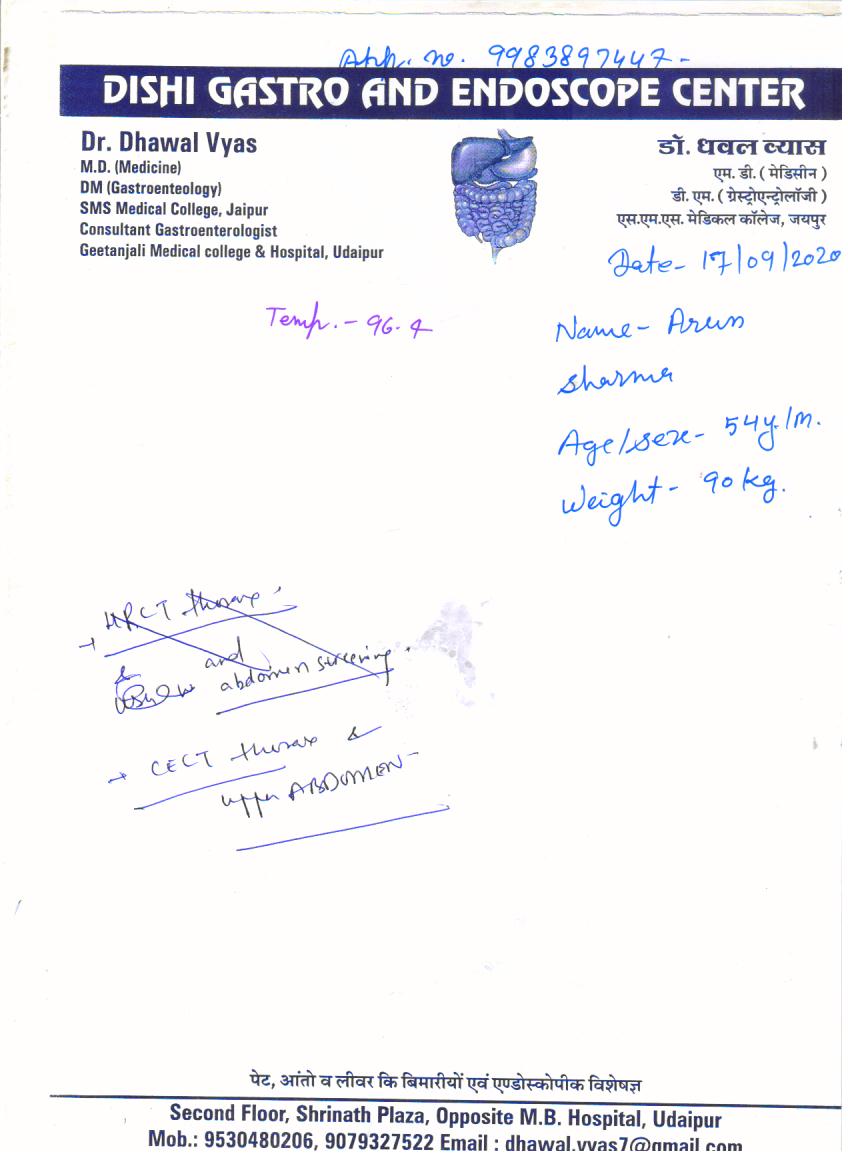 App. no. 9983897447-
DISHI GASTRO AND ENDOSCOPE CENTER
Dr. Dhawal Vyas
M.D. (Medicine)
DM (Gastroenteology)
SMS Medical College, Jaipur
Consultant Gastroenterologist
Geetanjali Medical college & Hospital, Udaipur
डॉ. धवल व्यास
एम. डी. ( मेडिसीन )
डी. एम. ( ग्रेस्ट्रोएन्ट्रोलॉजी )
एस.एम.एस. मेडिकल कॉलेज, जयपुर
Date- 17/09/2020
Temp.- 96.4
Name- Arun
Sharma
Age/sex- 54y/m.
Weight- 90kg.
→ HRCT thorax
& and
abdomen screening.
→ CECT thorax &
upper ABDOMEN-
पेट, आंतो व लीवर कि बिमारीयों एवं एण्डोस्कोपीक विशेषज्ञ
Second Floor, Shrinath Plaza, Opposite M.B. Hospital, Udaipur
Mob.: 9530480206, 9079327522 Email : dhawal.vyas7@gmail.com